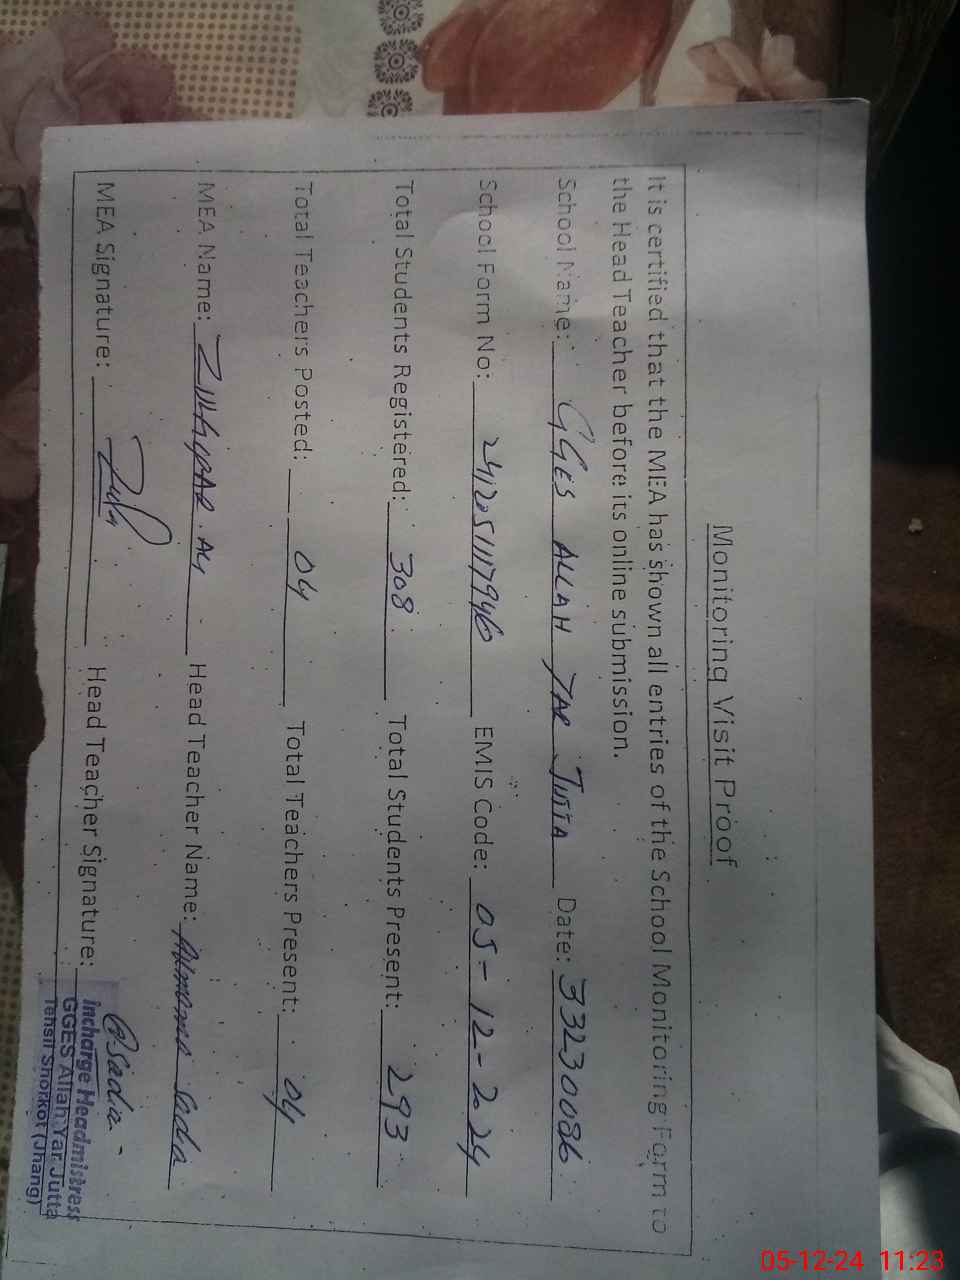 Monitoring Visit Proof
It is certified that the MEA has shown all entries of the School Monitoring Form to
the Head Teacher before its online submission.
School Name: GGES ALLAH YAR JUTTA Date: 33230086
School Form No: EMIS Code: 05-12-2024
Total Students Registered: 308 Total Students Present: 293
Total Teachers Posted: 04 Total Teachers Present: 04
MEA Name: ZULFIQAR ALI Head Teacher Name: Sadia
MEA Signature: Head Teacher Signature: Sadia
Incharge Headmistress
GGES Allah Yar Jutta
Tehsil Shorkot (Jhang)
05-12-24 11:23